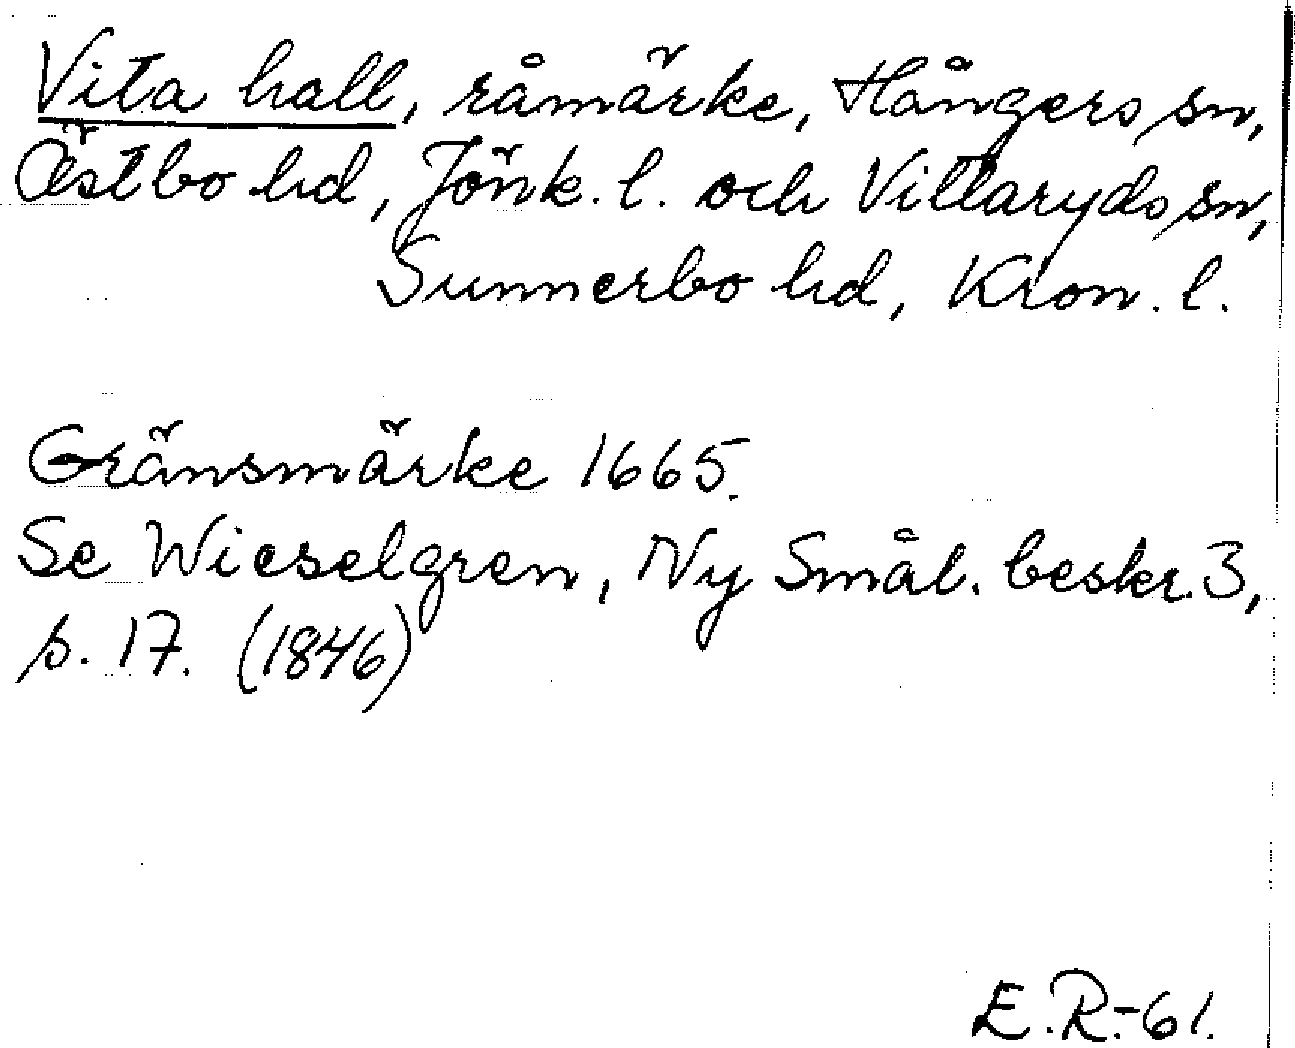 Vita hall, råmärke, Hångers sn,
Östbo hd, Jönk. l. och Vittaryds sn,
Sunnerbo hd, Kron. l.
Gränsmärke 1665.
Se Wieselgren, Ny Smål. beskr. 3,
s. 17. (1846)
E.R.-61.